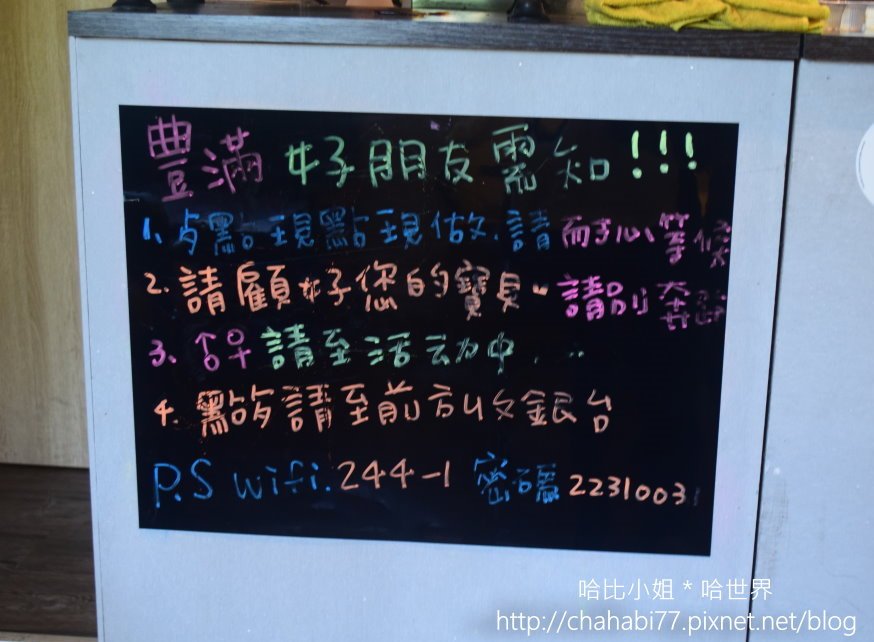 豐滿 好朋友需知!!!
1、點現點現做.請耐心等候
2. 請顧好您的寶貝~請別奔跑
3、請至活动中...
4. 點請至前方收銀台
P.S wifi. 244-1 密碼 2231003
哈比小姐 * 哈世界
http://chahabi77.pixnet.net/blog